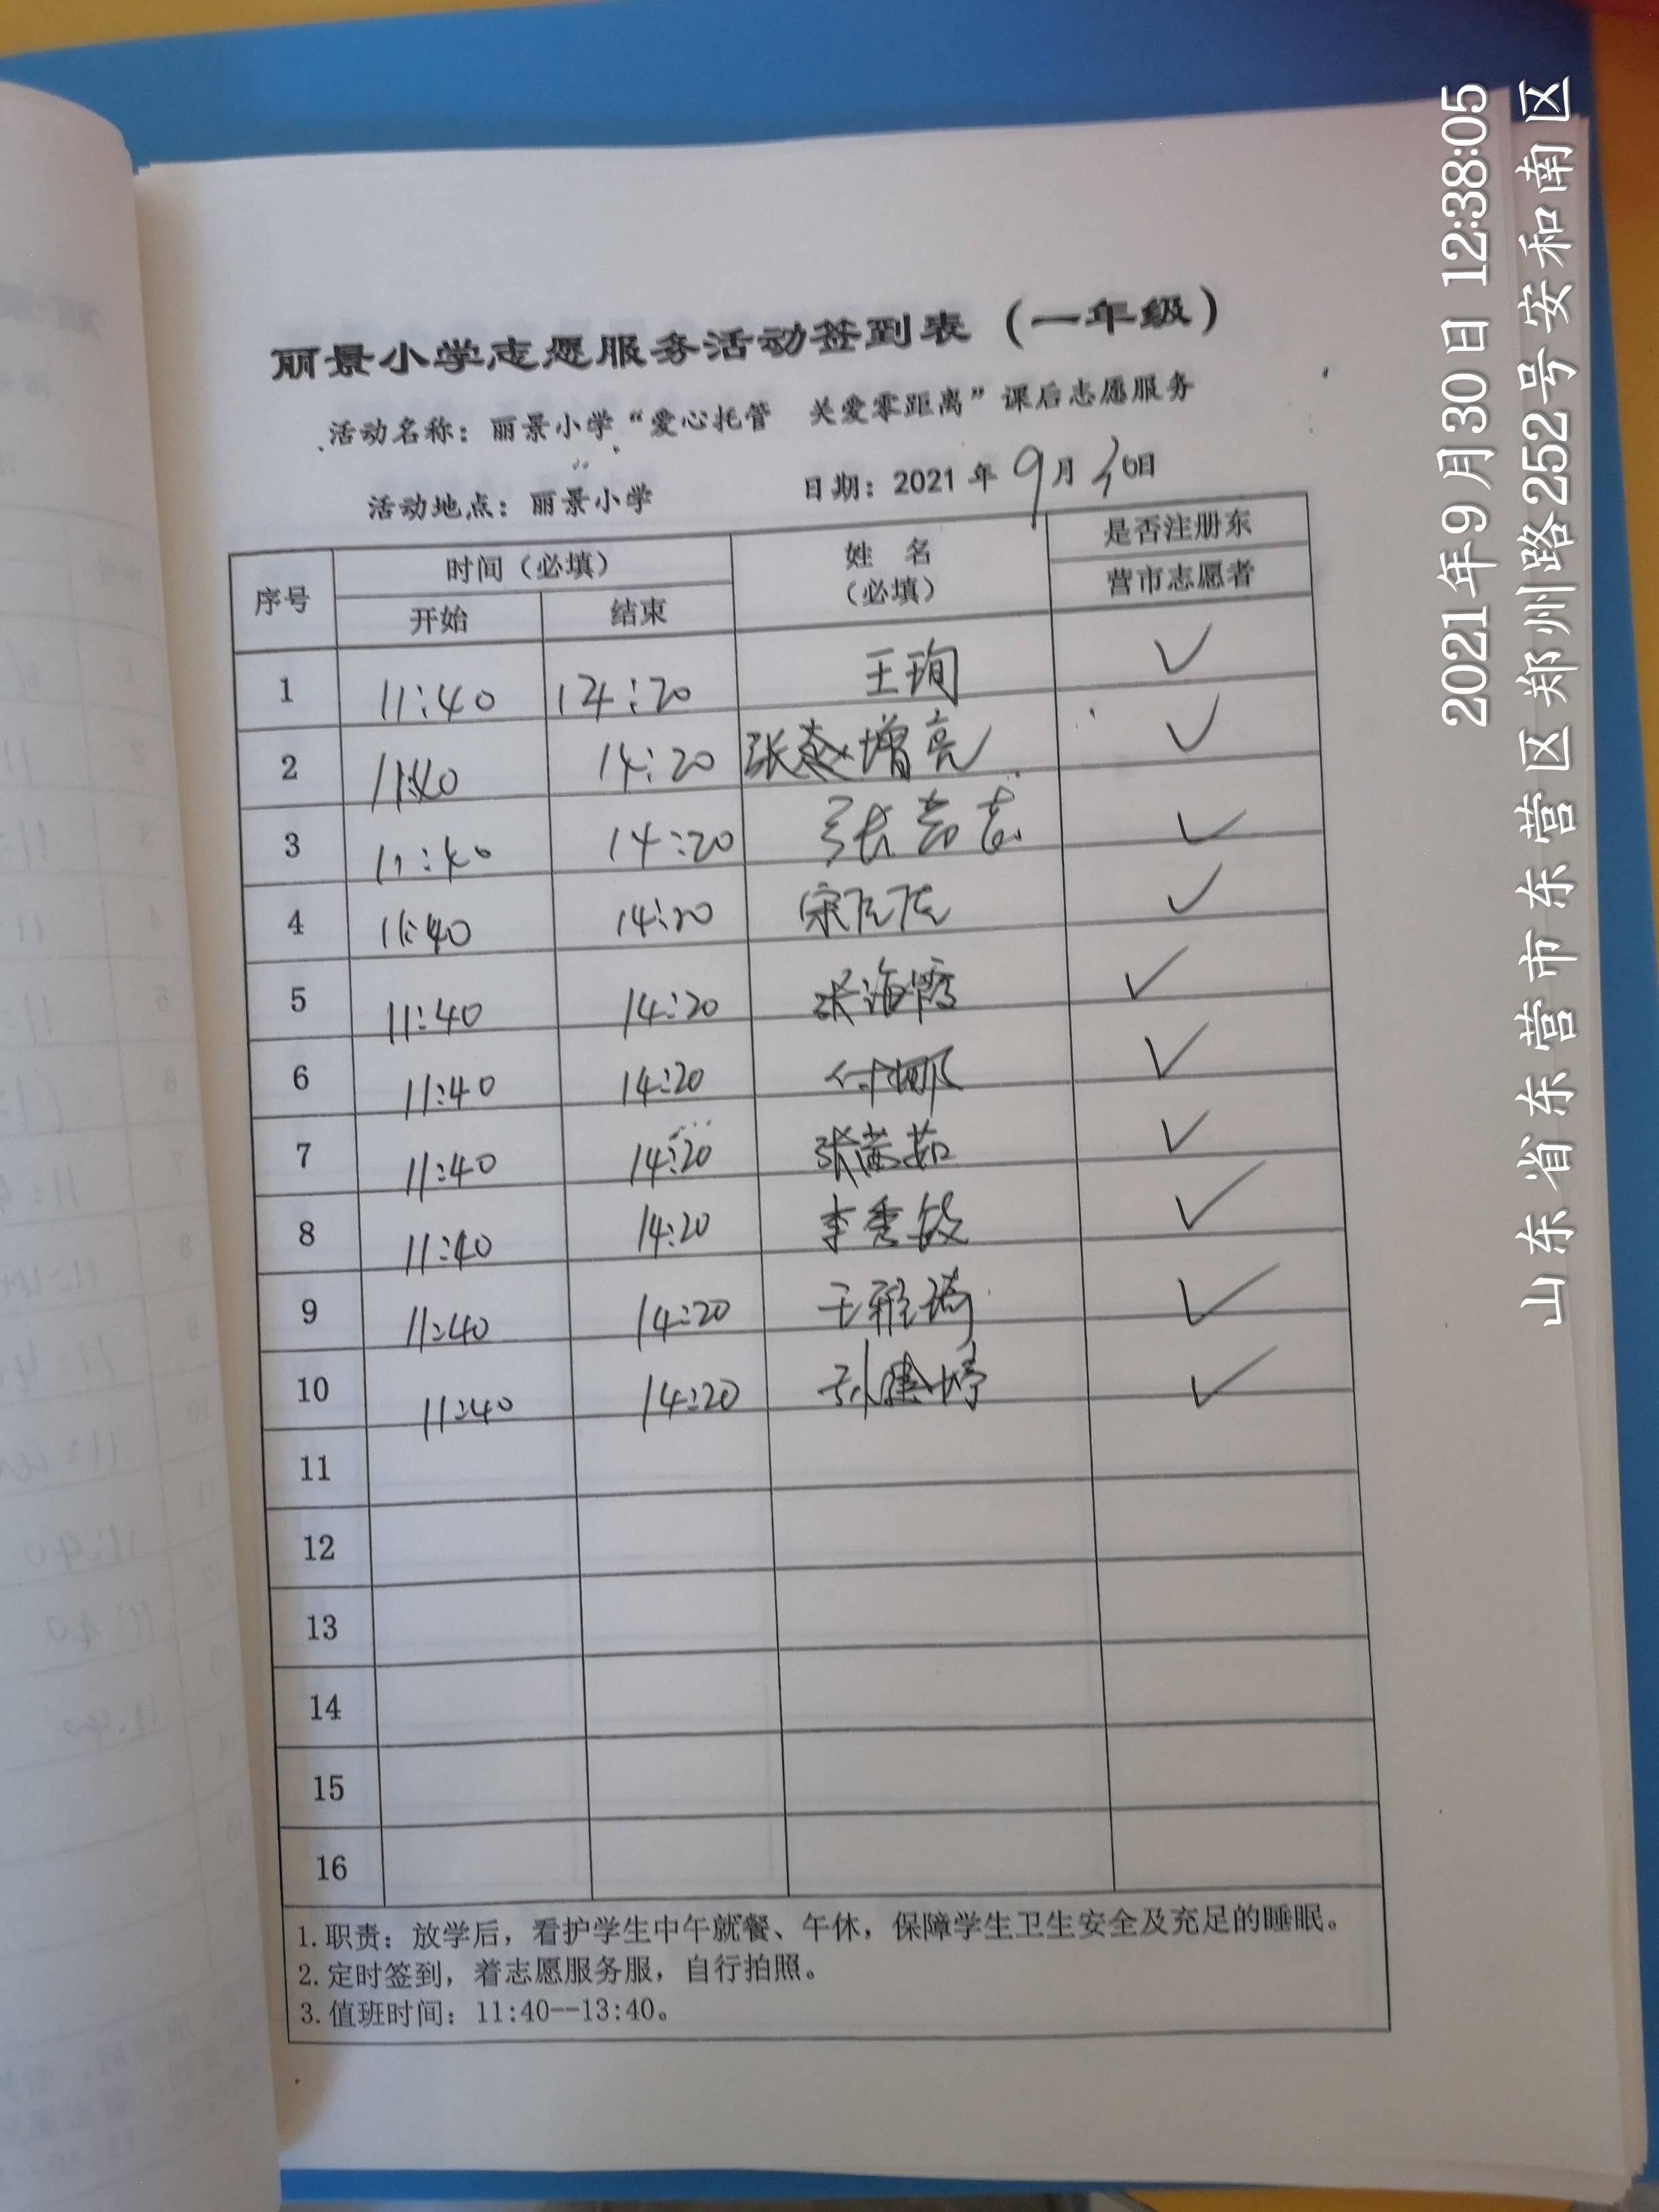 丽景小学志愿服务活动签到表（一年级）
活动名称：丽景小学“爱心托管 关爱零距离”课后志愿服务
活动地点：丽景小学 日期：2021年9月30日
序号 时间（必填） 姓名（必填） 是否注册东营市志愿者
开始 结束
1 11:40 14:20 王珣 ✓
2 11:40 14:20 张增亮 ✓
3 11:40 14:20 张 ✓
4 11:40 14:20 宋 ✓
5 11:40 14:20 张海霞 ✓
6 11:40 14:20 付娜 ✓
7 11:40 14:20 张茹 ✓
8 11:40 14:20 李秀敏 ✓
9 11:40 14:20 王雅琦 ✓
10 11:40 14:20 孙婷 ✓
11
12
13
14
15
16
1.职责：放学后，看护学生中午就餐、午休，保障学生卫生安全及充足的睡眠。
2.定时签到，着志愿服务服，自行拍照。
3.值班时间：11:40--13:40。
2021年9月30日 12:38:05
山东省东营市东营区郑州路252号安和南区